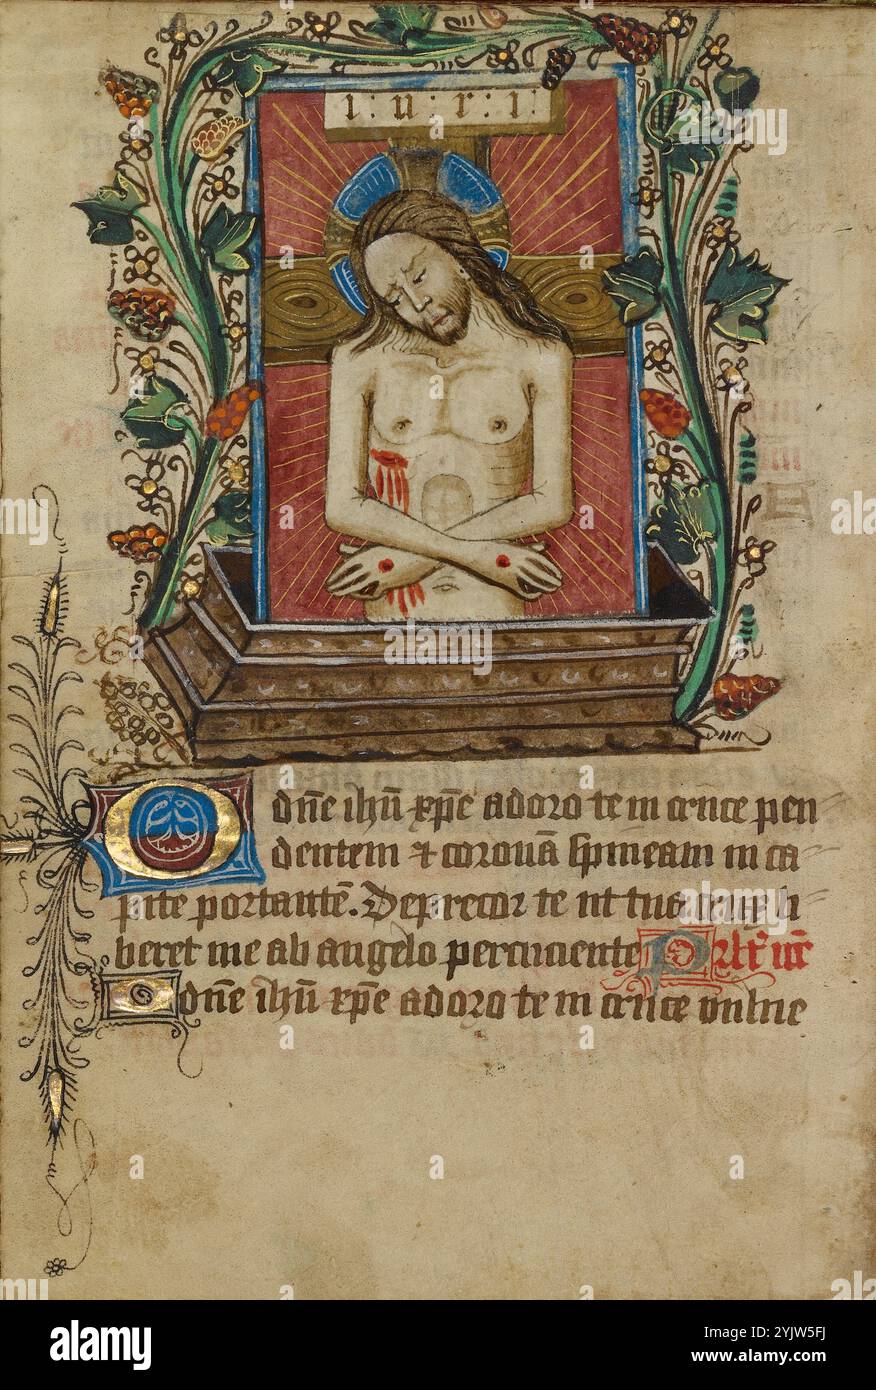 i : n : r : i
O dn̄e ihū xp̄e adoro te in cruce pen
dentem ⁊ coronā spineam in ca
pite portantē. Deprecor te ut tua crux li
beret me ab angelo percuciente Pr̄ nr̄
O dn̄e ihū xp̄e adoro te in cruce vulne
alamy
Image ID: 2YJW5FJ
www.alamy.com